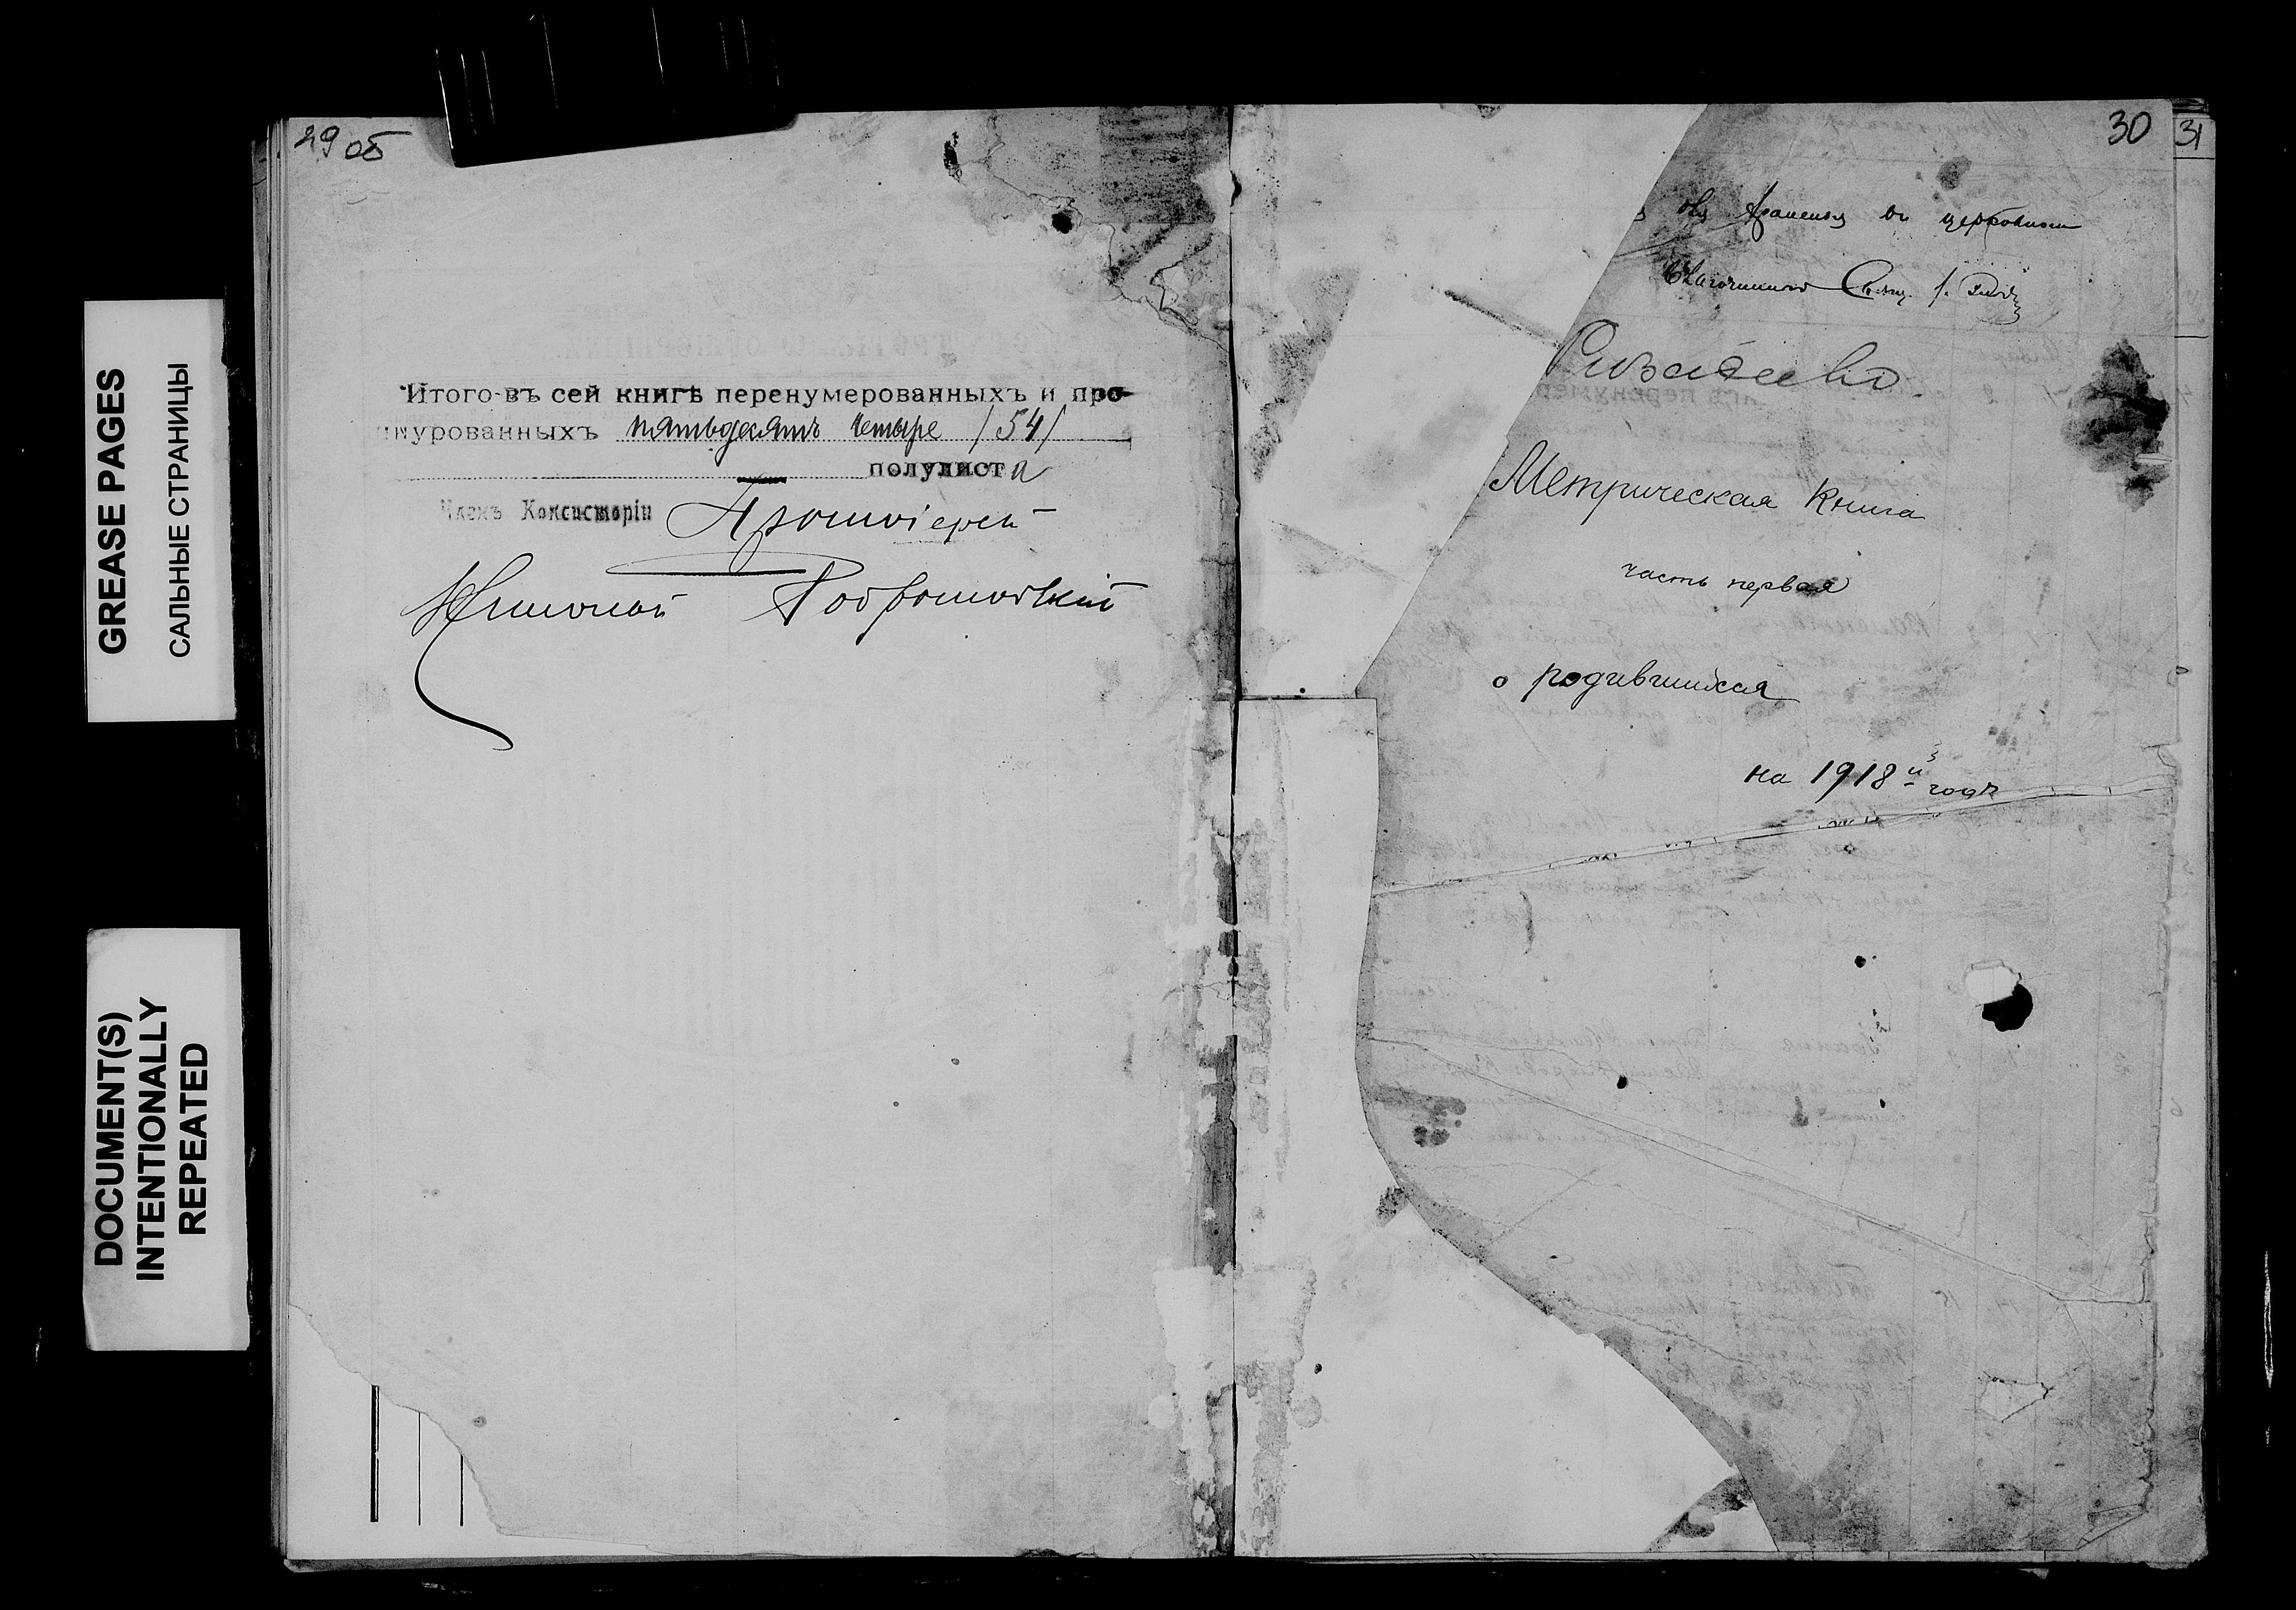 GREASE PAGES
САЛЬНЫЕ СТРАНИЦЫ
DOCUMENT(S)
INTENTIONALLY
REPEATED
29 об
Итого въ сей книгѣ перенумерованныхъ и про-
нурованныхъ пятьдесятъ четыре /54/
полулиста
Членъ Консисторіи Протоіерей
Николай
30
31
для храненія въ церковном
Благочинный Свящ.
Метрическая Книга
часть первая
о родившихся
на 1918й годъ